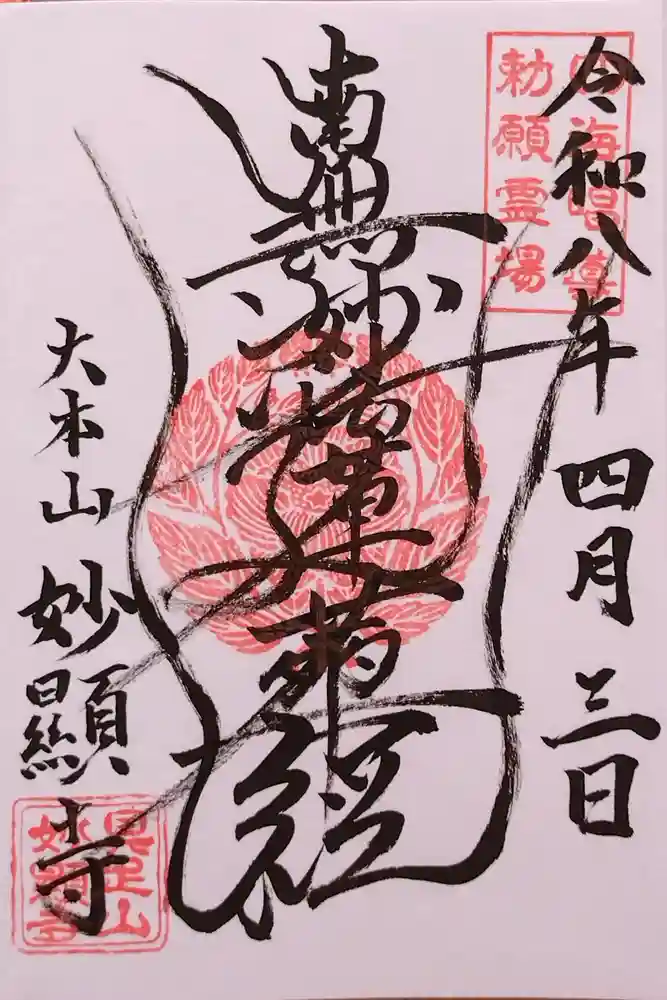 令和八年 四月 三日
四海唱導
勅願霊場
南無妙法蓮華経
大本山 妙顯寺
具足山
妙顯寺